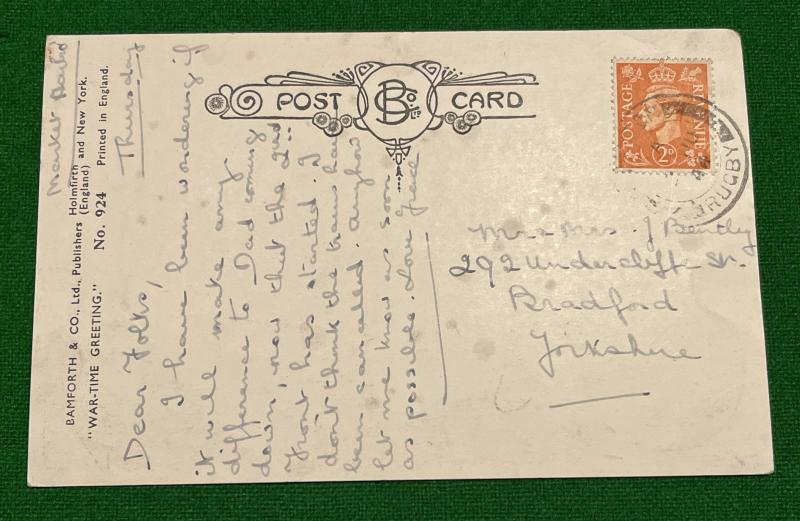 Market Harbro
Thursday
Dear Folks,
I have been wondering if
it will make any
difference to Dad coming
down, now that the 2nd
Front has started. I
don't think the trains have
been cancelled. Anyhow
let me know as soon
as possible. Love Grace
BAMFORTH & CO., Ltd., Publishers Holmfirth and New York.
(England)
"WAR-TIME GREETING."
No. 924 Printed in England.
POST CARD
B Co Ltd
POSTAGE
REVENUE
2D
RUGBY
Mr & Mrs. J Bentley
292 Undercliffe St.
Bradford
Yorkshire